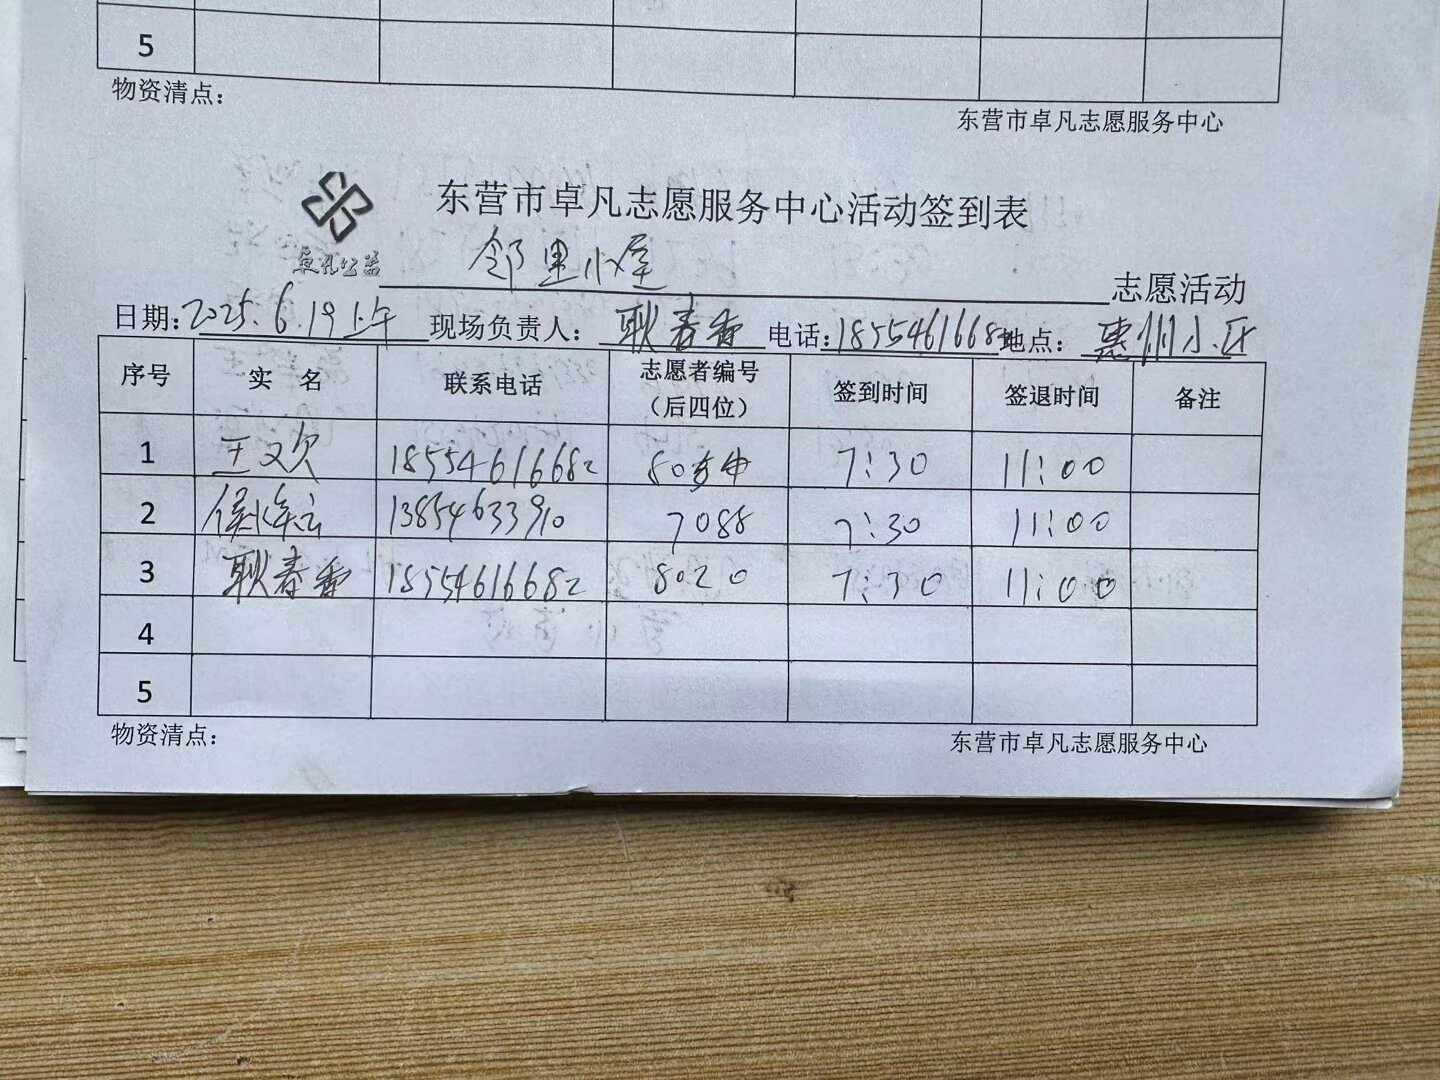 5
物资清点：
东营市卓凡志愿服务中心
东营市卓凡志愿服务中心活动签到表
卓凡公益
邻里小屋 志愿活动
日期：2025.6.19上午 现场负责人：耿春香 电话：18554616682 地点：惠州小区
序号 实 名 联系电话 志愿者编号（后四位） 签到时间 签退时间 备注
1 王欢 18554616682 80 7:30 11:00
2 13854633910 7088 7:30 11:00
3 耿春香 18554616682 8020 7:30 11:00
4
5
物资清点：
东营市卓凡志愿服务中心